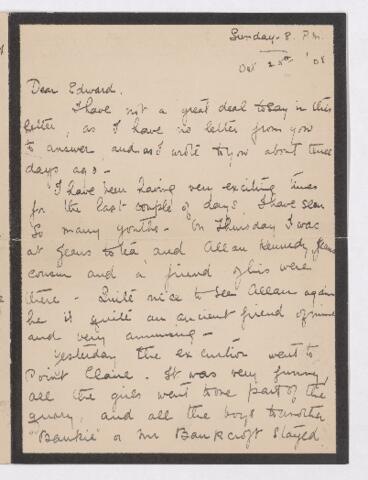 Sunday - 8. P.M.
Oct 25th '08
Dear Edward.
I have not a great deal to say in this
letter, as I have no letter from you
to answer, and as I wrote to you about three
days ago -
I have been having very exciting times
for the last couple of days. I have seen
so many youths - On Thursday I was
at Jeans to tea, and Allan Kennedy, Jeans
cousin and a friend of his were
there - Quite nice to see Allan again
he is quite an ancient friend of mine
and very amusing -
Yesterday the excurtion went to
Point Claire. It was very funny,
all the girls went to one part of the
quary, and all the boys to another
"Bankie" or Mr Bankcroft stayed